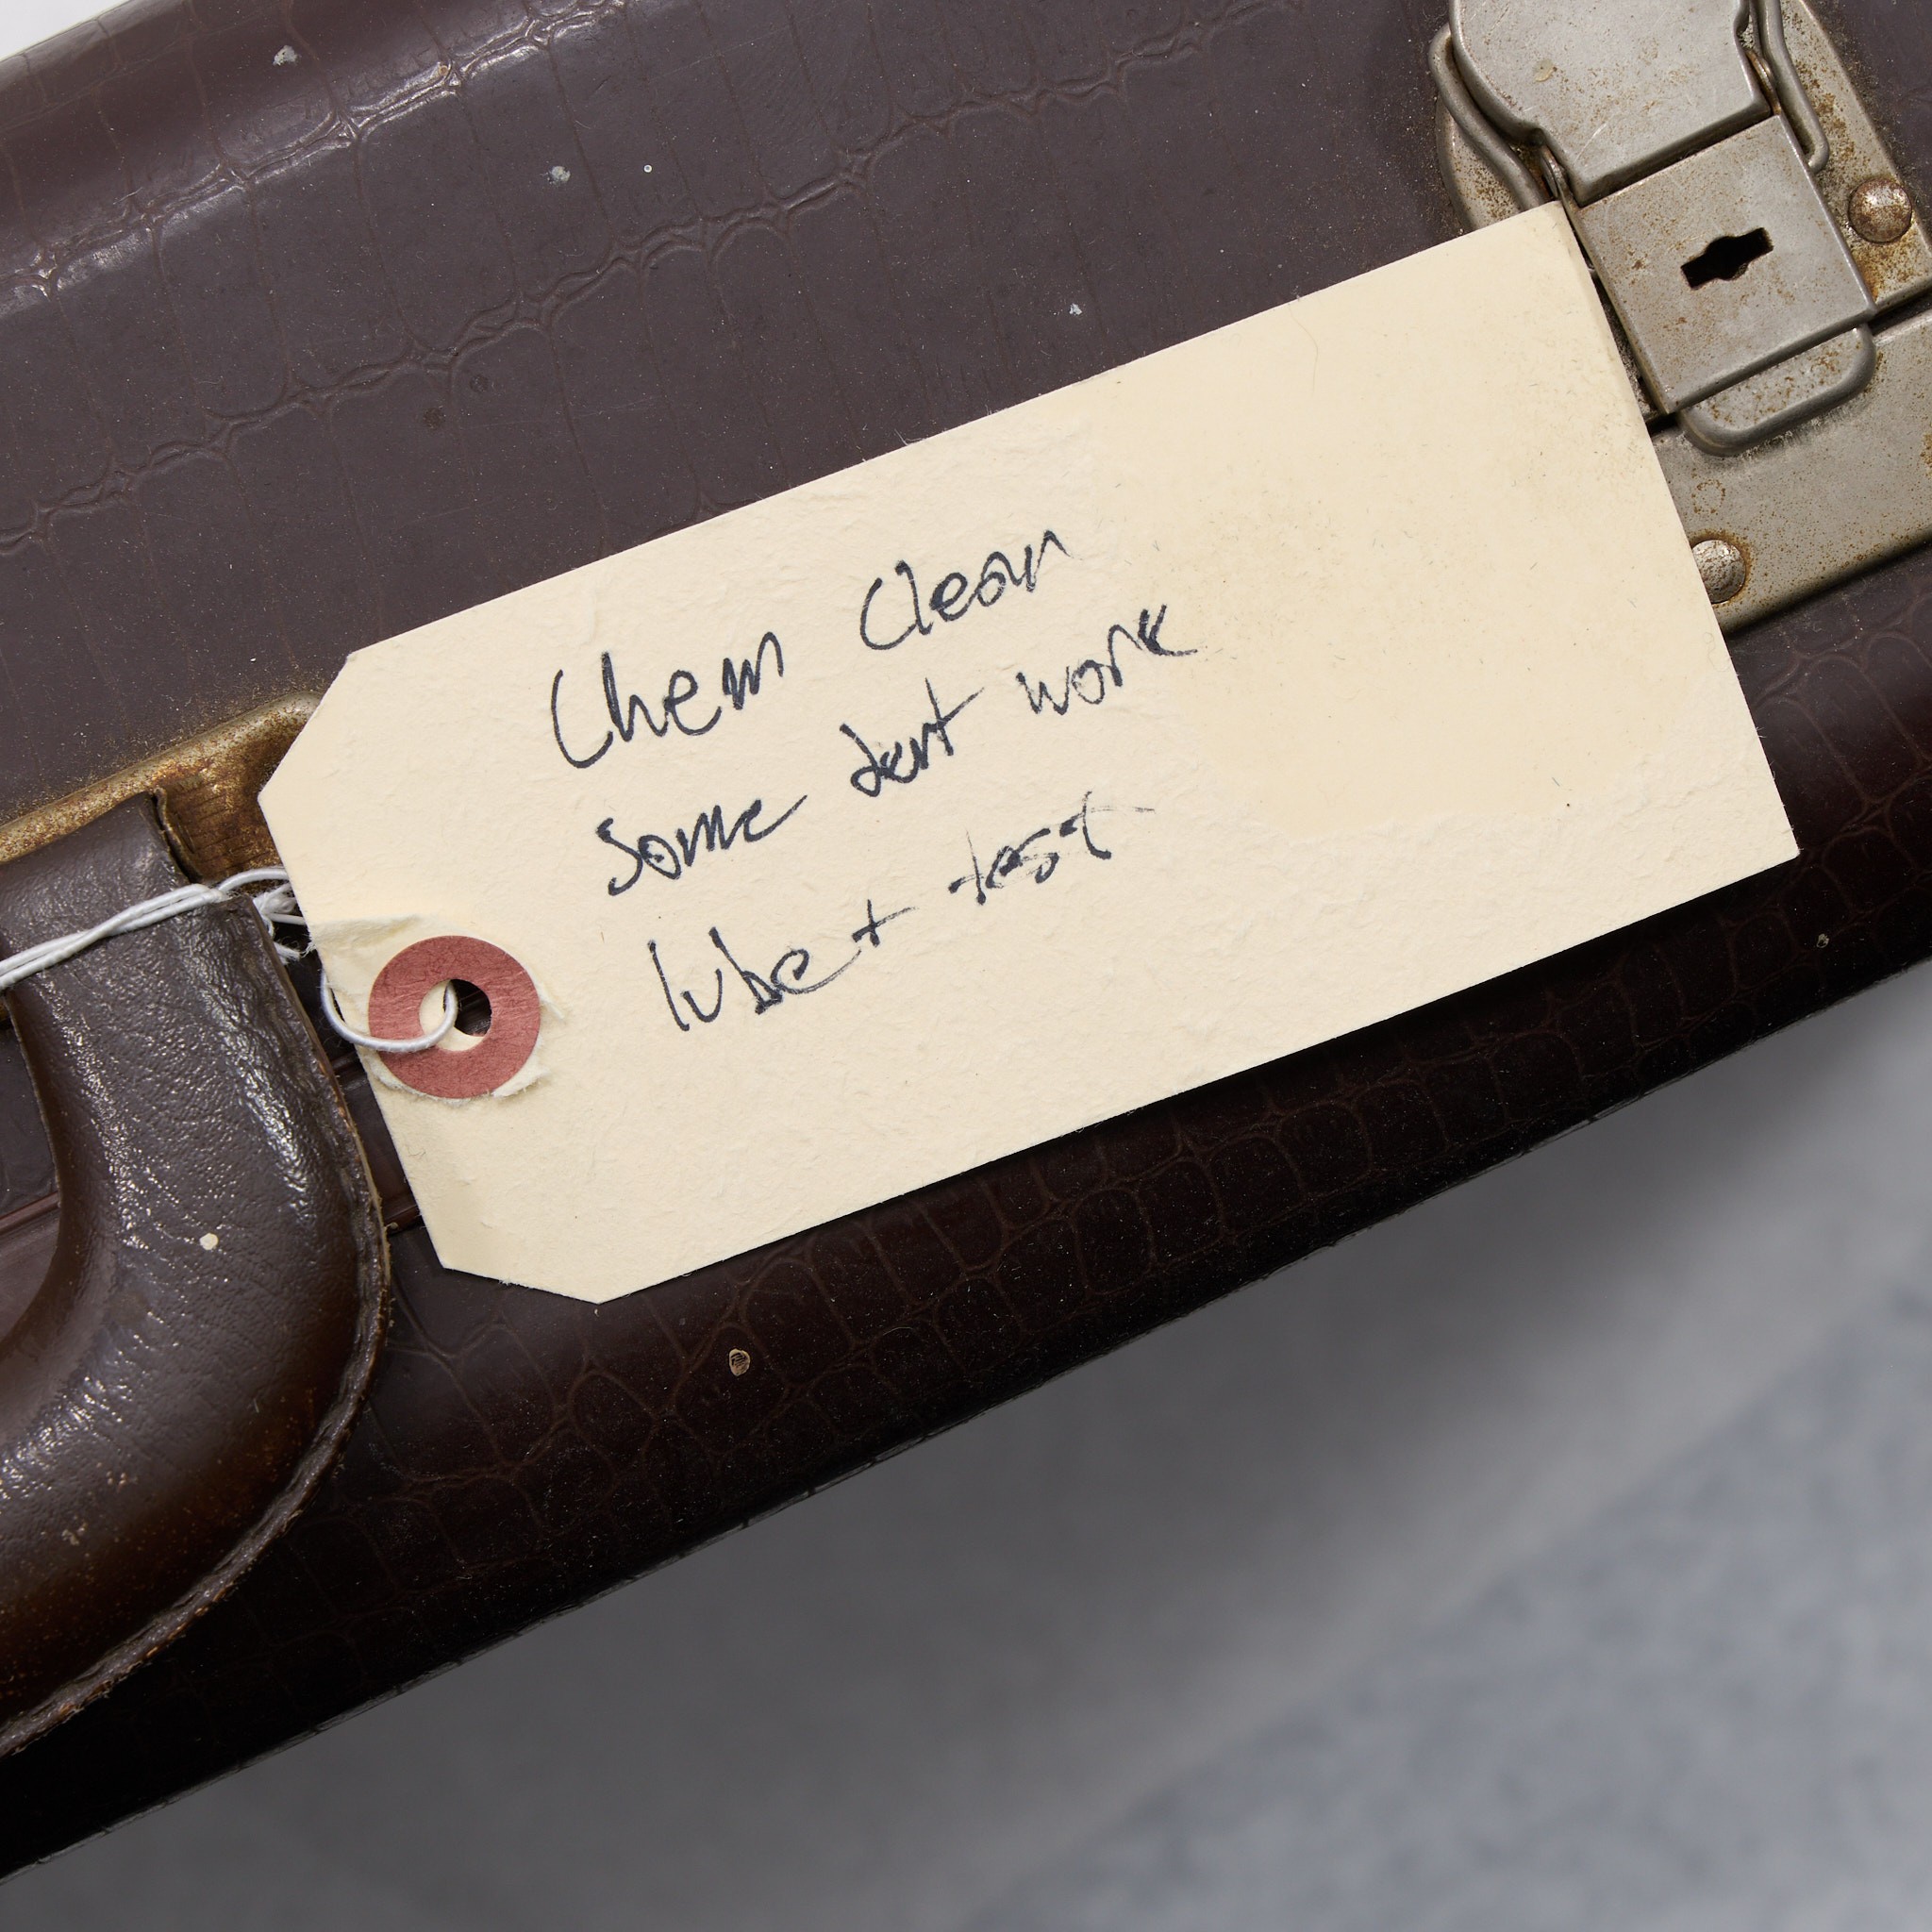 Chem Clean
some dont work
lube + test